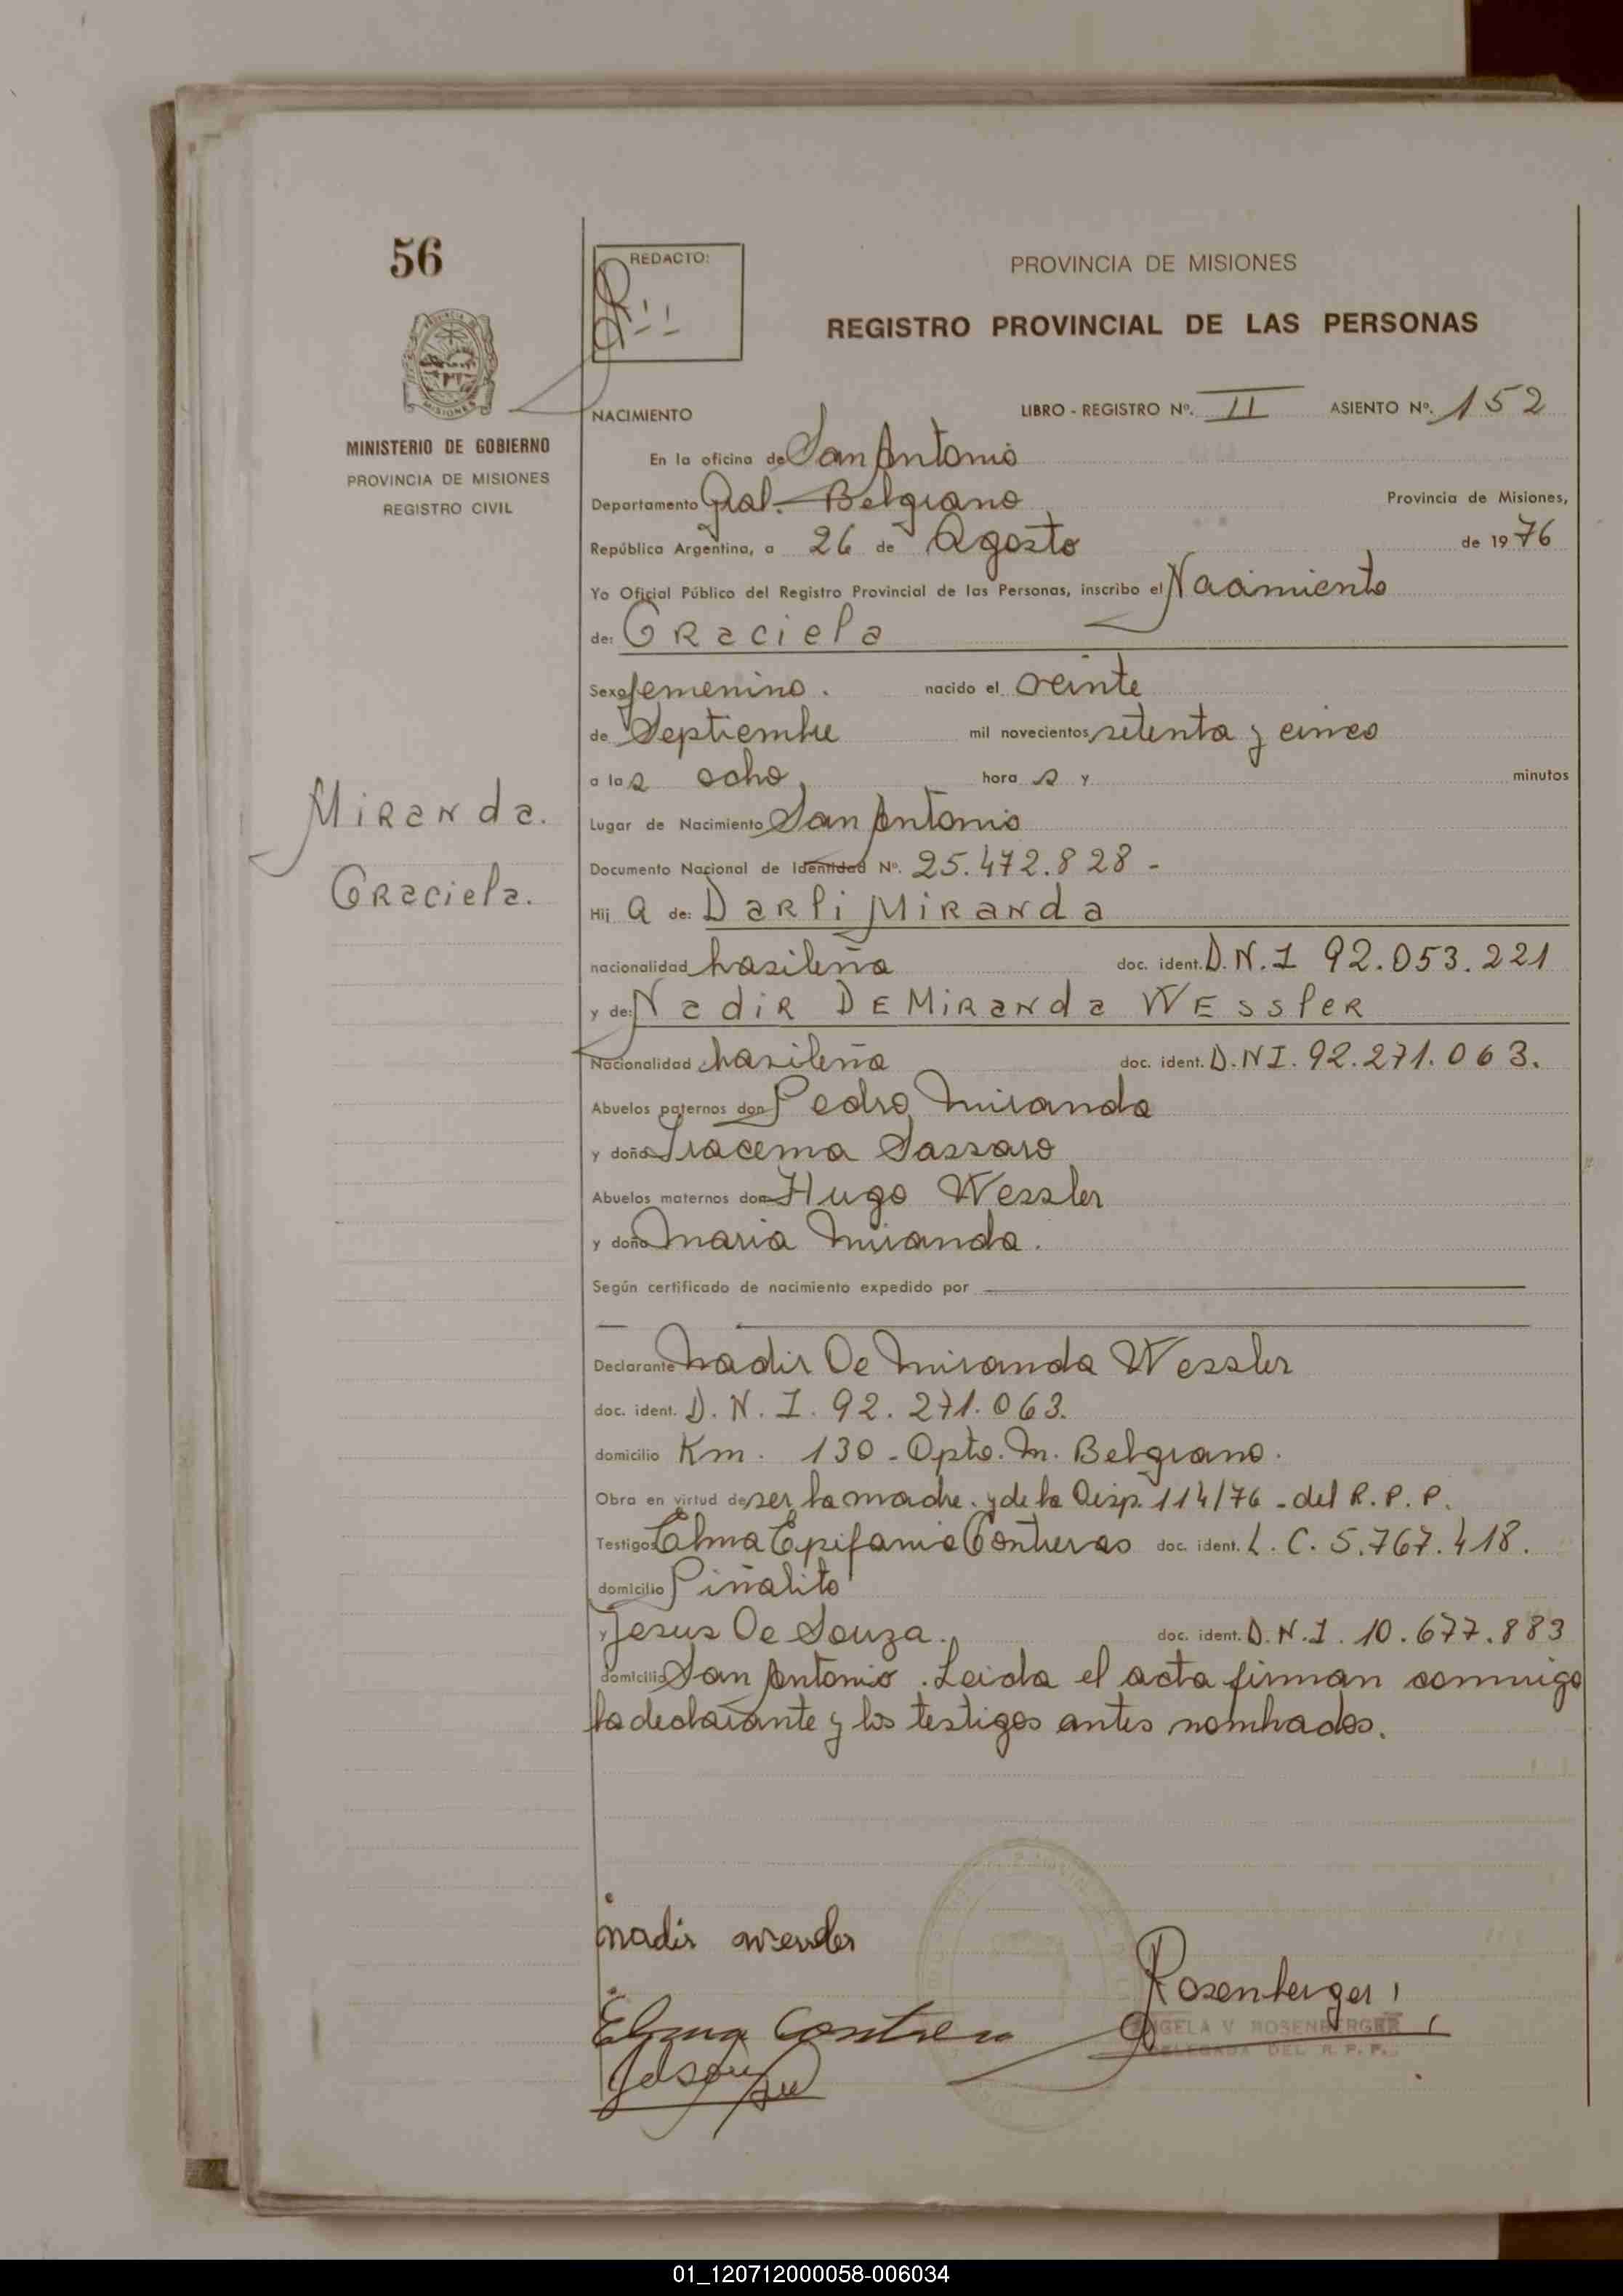 56
REDACTO:
PROVINCIA DE MISIONES
REGISTRO PROVINCIAL DE LAS PERSONAS
MISIONES
MINISTERIO DE GOBIERNO
PROVINCIA DE MISIONES
REGISTRO CIVIL
NACIMIENTO LIBRO - REGISTRO Nº. II ASIENTO Nº. 152
En la oficina de San Antonio
Departamento Gral. Belgrano Provincia de Misiones,
República Argentina, a 26 de Agosto de 1976
Yo Oficial Público del Registro Provincial de las Personas, inscribo el Nacimiento
de: Graciela
Sexo femenino. nacido el veinte
de Septiembre mil novecientos setenta y cinco
a las ocho, hora s y minutos
Miranda.
Graciela.
Lugar de Nacimiento San Antonio
Documento Nacional de Identidad Nº. 25.472.828 -
Hij a de: Darli Miranda
nacionalidad brasileña doc. ident. D.N.I 92.053.221
y de: Nadir De Miranda Wessler
Nacionalidad brasileña doc. ident. D.N.I. 92.271.063.
Abuelos paternos don Pedro Miranda
y doña Iracema Sassaro
Abuelos maternos don Hugo Wessler
y doña Maria Miranda.
Según certificado de nacimiento expedido por
Declarante Nadir De Miranda Wessler
doc. ident. D.N.I. 92.271.063.
domicilio Km. 130 - Dpto. M. Belgrano.
Obra en virtud de ser la madre. y de la Disp. 114/76 - del R.P.P.
Testigos Elma Epifania Contreras doc. ident. L.C. 5.767.418.
domicilio Piñalito
y Jesus De Souza. doc. ident. D.N.I. 10.677.883
domicilio San Antonio. Leida el acta firman conmigo
la declarante y los testigos antes nombrados.
nadir wessler
Rosenberger
Elma Contrera
ANGELA V ROSENBERGER
DELEGADA DEL R. P. P.
01_120712000058-006034